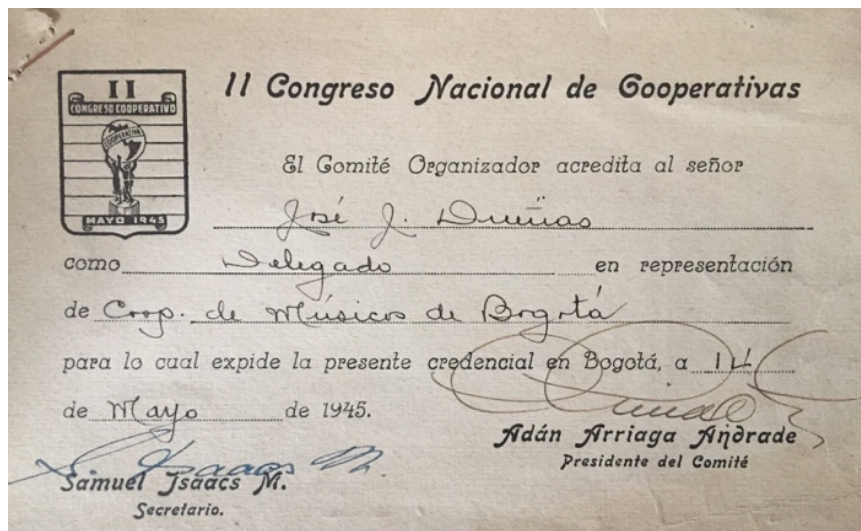 II
CONGRESO COOPERATIVO
COOPERATIVA
MAYO 1945
II Congreso Nacional de Cooperativas
El Comité Organizador acredita al señor
José J. Dueñas
como Delegado en representación
de Coop. de Músicos de Bogotá
para lo cual expide la presente credencial en Bogotá, a 14
de Mayo de 1945.
Adán Arriaga Andrade
Presidente del Comité
S Isaacs M.
Samuel Isaacs M.
Secretario.